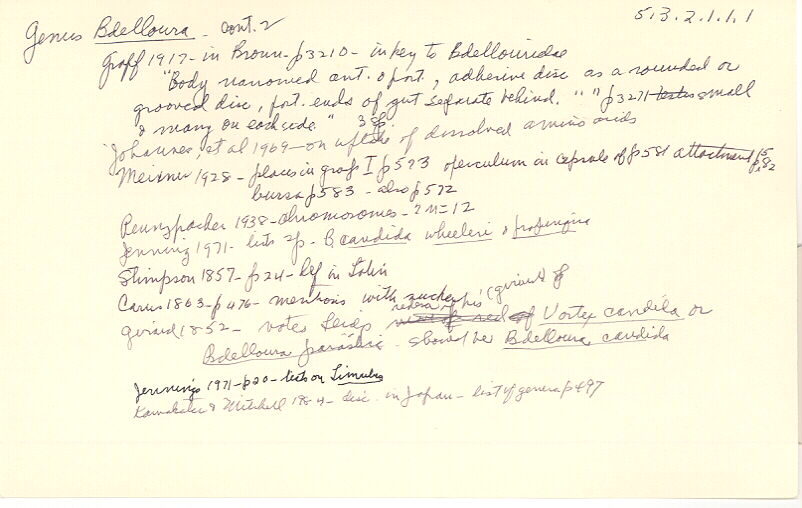 5.3.2.1.1.1
Genus Bdelloura - cont. 2
Graff 1917 - in Bronn - p3210 - in key to Bdellouridae
"Body narrowed ant. & post., adhesive disc as a rounded or
grooved disc, post. ends of gut separate behind." " p3271 testes small
& many on each side." 3 sp
Johannes, et al 1969 - on uptake of dissolved amino acids
Meixner 1928 - places in group I p573 operculum in capsule of p581 attachment p582
bursa p583 - also p572
Pennypacker 1938 - chromosomes - 2n=12
Jennings 1971 - lists sp - B candida wheeleri & propinqua
Stimpson 1857 - p24 - def in Latin
Carus 1863 - p476 - mentions with sucker (girard) of
Girard 1852 - notes Leidy's Vortex candida or
Bdelloura parasitica - should be Bdelloura candida
Jennings 1971 - p20 - lists on Limulus
Kawakatsu & Mitchell 1984 - disc. in Japan - list of genera p497